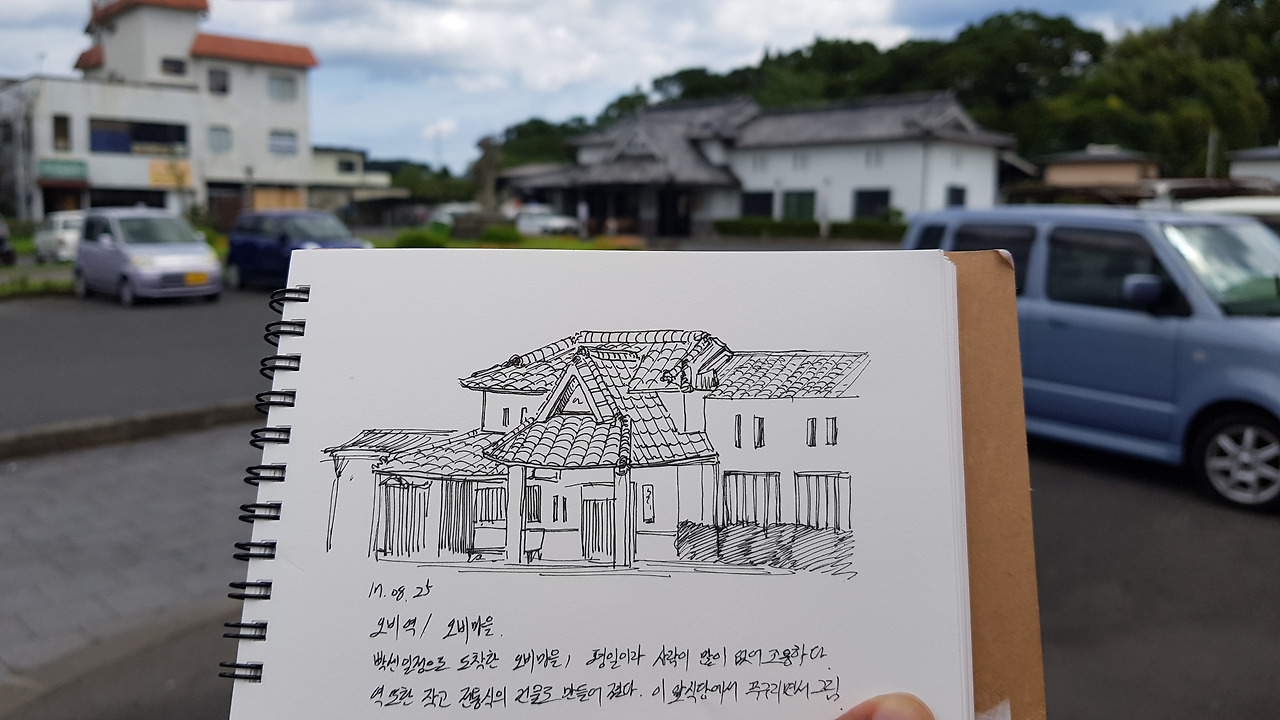 17.08.25
오비역 / 오비마을.
도착한 오비마을, 평일이라 사람이 많이 없어 조용하다.
역 또한 작고 전통식의 건물로 만들어 졌다. 이 앞식당에서 쭈구려서 그림.